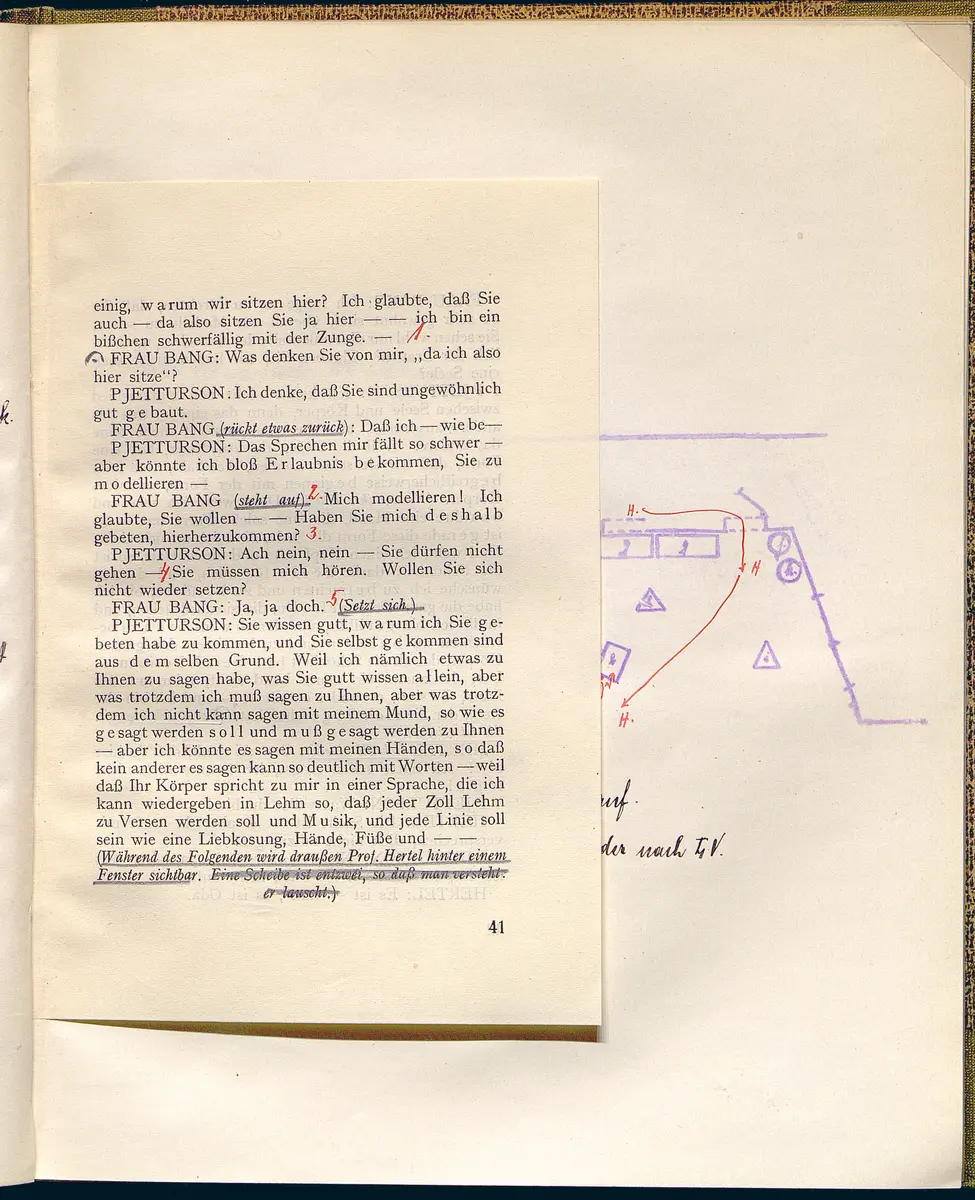 einig, warum wir sitzen hier? Ich glaubte, daß Sie
auch — da also sitzen Sie ja hier — — ich bin ein
bißchen schwerfällig mit der Zunge. — 1.
FRAU BANG: Was denken Sie von mir, „da ich also
hier sitze“?
PJETTURSON: Ich denke, daß Sie sind ungewöhnlich
gut gebaut.
FRAU BANG (rückt etwas zurück): Daß ich — wie be—
PJETTURSON: Das Sprechen mir fällt so schwer —
aber könnte ich bloß Erlaubnis bekommen, Sie zu
modellieren —
FRAU BANG (steht auf): 2. Mich modellieren! Ich
glaubte, Sie wollen — — Haben Sie mich deshalb
gebeten, hierherzukommen? 3.
PJETTURSON: Ach nein, nein — Sie dürfen nicht
gehen — 4. Sie müssen mich hören. Wollen Sie sich
nicht wieder setzen?
FRAU BANG: Ja, ja doch. 5 (Setzt sich.)
PJETTURSON: Sie wissen gutt, warum ich Sie ge-
beten habe zu kommen, und Sie selbst gekommen sind
aus demselben Grund. Weil ich nämlich etwas zu
Ihnen zu sagen habe, was Sie gutt wissen allein, aber
was trotzdem ich muß sagen zu Ihnen, aber was trotz-
dem ich nicht kann sagen mit meinem Mund, so wie es
gesagt werden soll und muß gesagt werden zu Ihnen
— aber ich könnte es sagen mit meinen Händen, so daß
kein anderer es sagen kann so deutlich mit Worten — weil
daß Ihr Körper spricht zu mir in einer Sprache, die ich
kann wiedergeben in Lehm so, daß jeder Zoll Lehm
zu Versen werden soll und Musik, und jede Linie soll
sein wie eine Liebkosung, Hände, Füße und — —
(Während des Folgenden wird draußen Prof. Hertel hinter einem
Fenster sichtbar. Eine Scheibe ist entzwei, so daß man versteht:
er lauscht.)
41
H.
H
H.
2
1
uf.
der nach